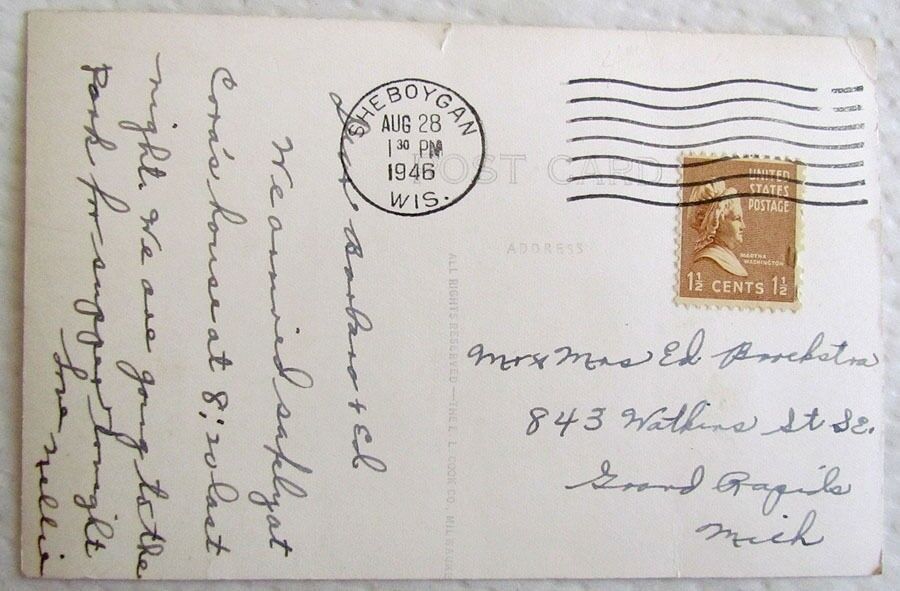 Dear Barbara & Ed
We arrived safely at
Cora's house at 8:20 last
night. We are going to the
Park for supper tonight
Love Nellie
SHEBOYGAN
AUG 28
1 30 PM
1946
WIS.
POST CARD
UNITED
STATES
POSTAGE
MARTHA
WASHINGTON
1½ CENTS 1½
ADDRESS
ALL RIGHTS RESERVED—THE L. L. COOK CO., MILWAUKEE
Mr & Mrs Ed Broekstra
843 Watkins St SE.
Grand Rapids
Mich